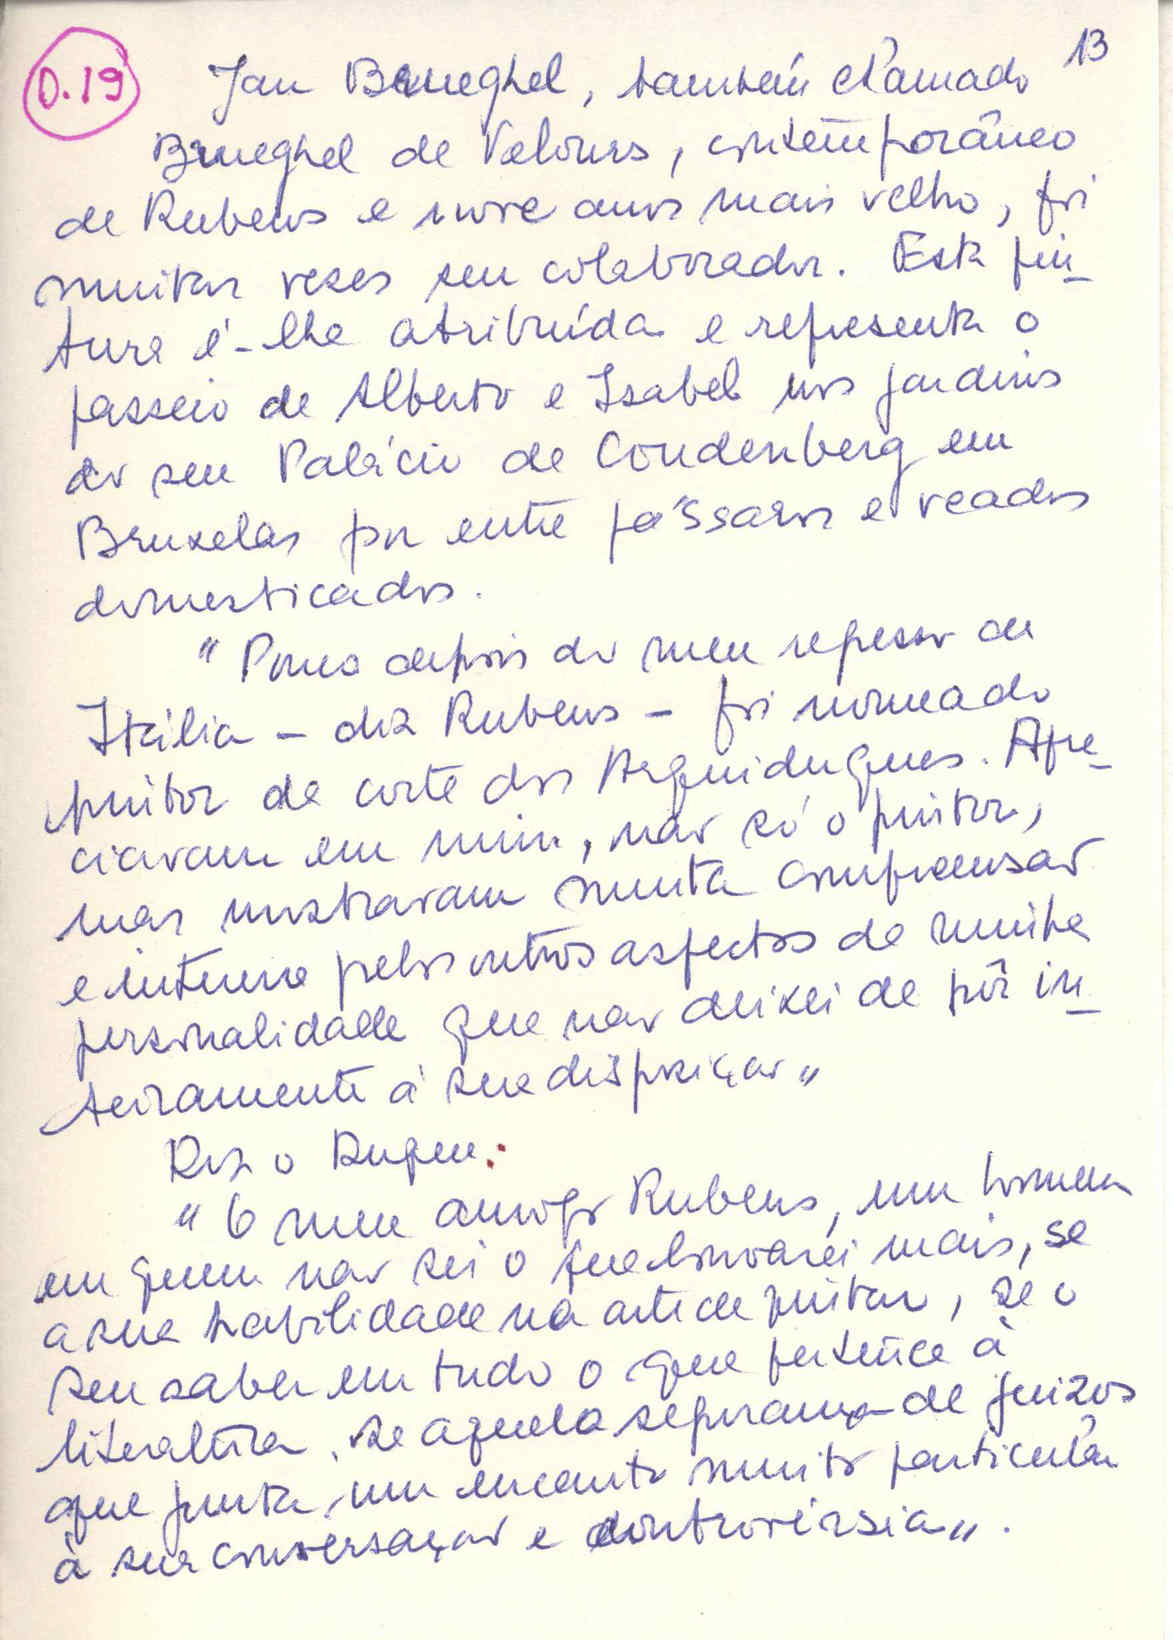 D.19
13
Jan Brueghel, também chamado
Brueghel de Velours, contemporâneo
de Rubens e nove anos mais velho, foi
muitas vezes seu colaborador. Esta pin-
tura é-lhe atribuída e representa o
passeio de Alberto e Isabel nos jardins
do seu Palácio de Coudenberg em
Bruxelas por entre pássaros e veados
domesticados.
" Pouco depois do meu regresso de
Itália – diz Rubens – foi nomeado
pintor da corte dos Arquiduques. Apre-
ciavam em mim, não só o pintor,
mas mostravam muita compreensão
e interesse pelos outros aspectos da minha
personalidade que não deixei de pôr in-
teiramente à sua disposição"
Diz o
"O meu amigo Rubens, um homem
em quem não sei o que louvarei mais, se
a sua habilidade na arte de pintar, se o
seu saber em tudo o que pertence à
literatura, se aquela segurança de juizos
que junta um encanto muito particular
à sua conversação e controvérsia".